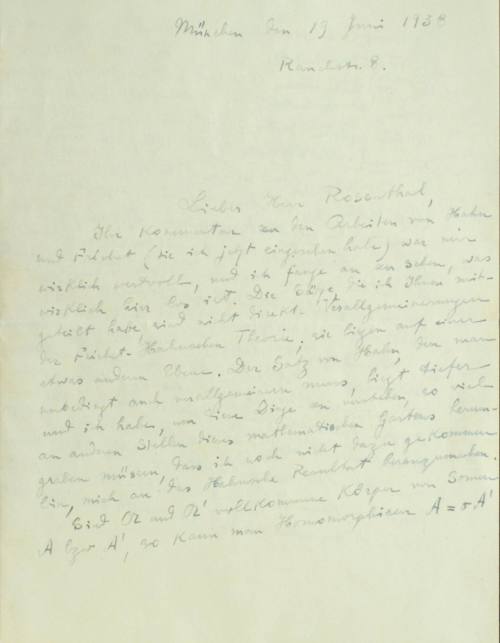 München den 19 Juni 1938
Rauchstr. 8.
Lieber Herr Rosenthal,
Ihr Kommentar zu den Arbeiten von Hahn
und Fréchet (die ich jetzt eingesehen habe) war mir
wirklich wertvoll, und ich fange an zu sehen, was
wirklich hier los ist. Die Sätze, die ich Ihnen mit-
geteilt habe, sind nicht direkt Verallgemeinerungen
der Fréchet-Hahnschen Theorie, sie liegen auf einer
etwas andern Ebene. Der Satz von Hahn, den man
unbedingt auch verallgemeinern muss, liegt tiefer
und ich habe, um diese Dinge zu verstehen, so viel
an anderen Stellen dieses mathematischen Gartens herum-
graben müssen, dass ich noch nicht dazu gekommen
bin, mich an das Hahnsche Resultat heranzumachen.
Sind und vollkommene Körper von Somen
A bzw A', so kann man Homomorphieen A = σA'